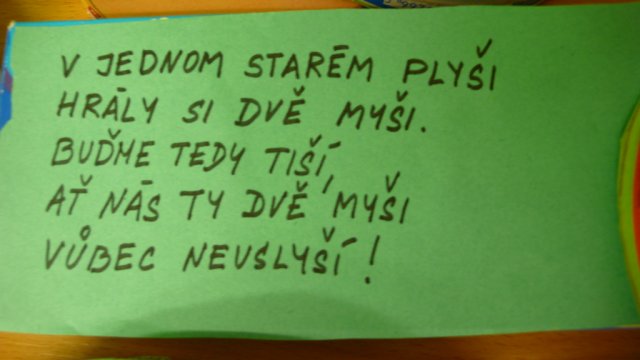 V JEDNOM STARÉM PLYŠI
HRÁLY SI DVĚ MYŠI.
BUĎME TEDY TIŠÍ,
AŤ NÁS TY DVĚ MYŠI
VŮBEC NEUSLYŠÍ!